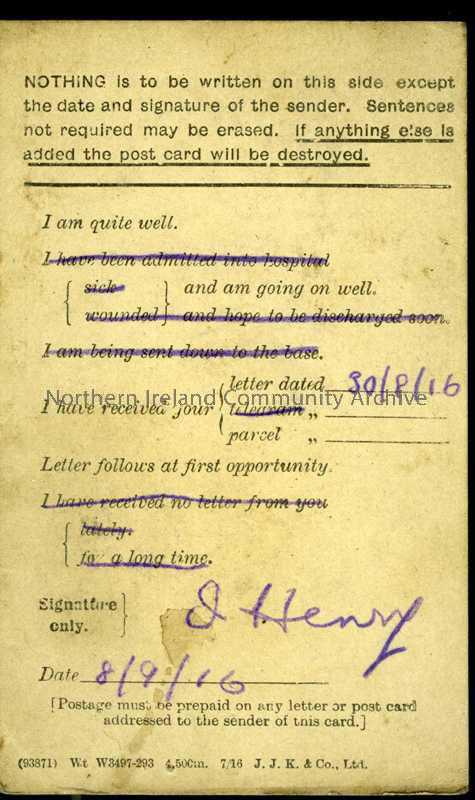 NOTHING is to be written on this side except
the date and signature of the sender. Sentences
not required may be erased. If anything else is
added the post card will be destroyed.
I am quite well.
I have been admitted into hospital
sick and am going on well.
wounded and hope to be discharged soon.
I am being sent down to the base.
letter dated 30/8/16
I have received your telegram „
parcel „
Northern Ireland Community Archive
Letter follows at first opportunity.
I have received no letter from you
lately.
for a long time.
Signature
only. I Henry
Date 8/9/16
[Postage must be prepaid on any letter or post card
addressed to the sender of this card.]
(93871) Wt. W3497-293 4,500m. 7/16 J. J. K. & Co., Ltd.